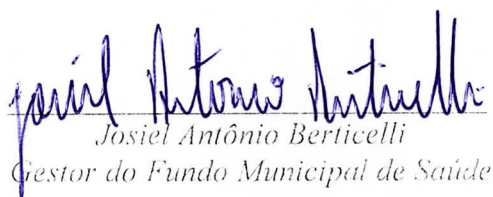 Josiel Antonio Berticelli
Josiel Antônio Berticelli
Gestor do Fundo Municipal de Saúde